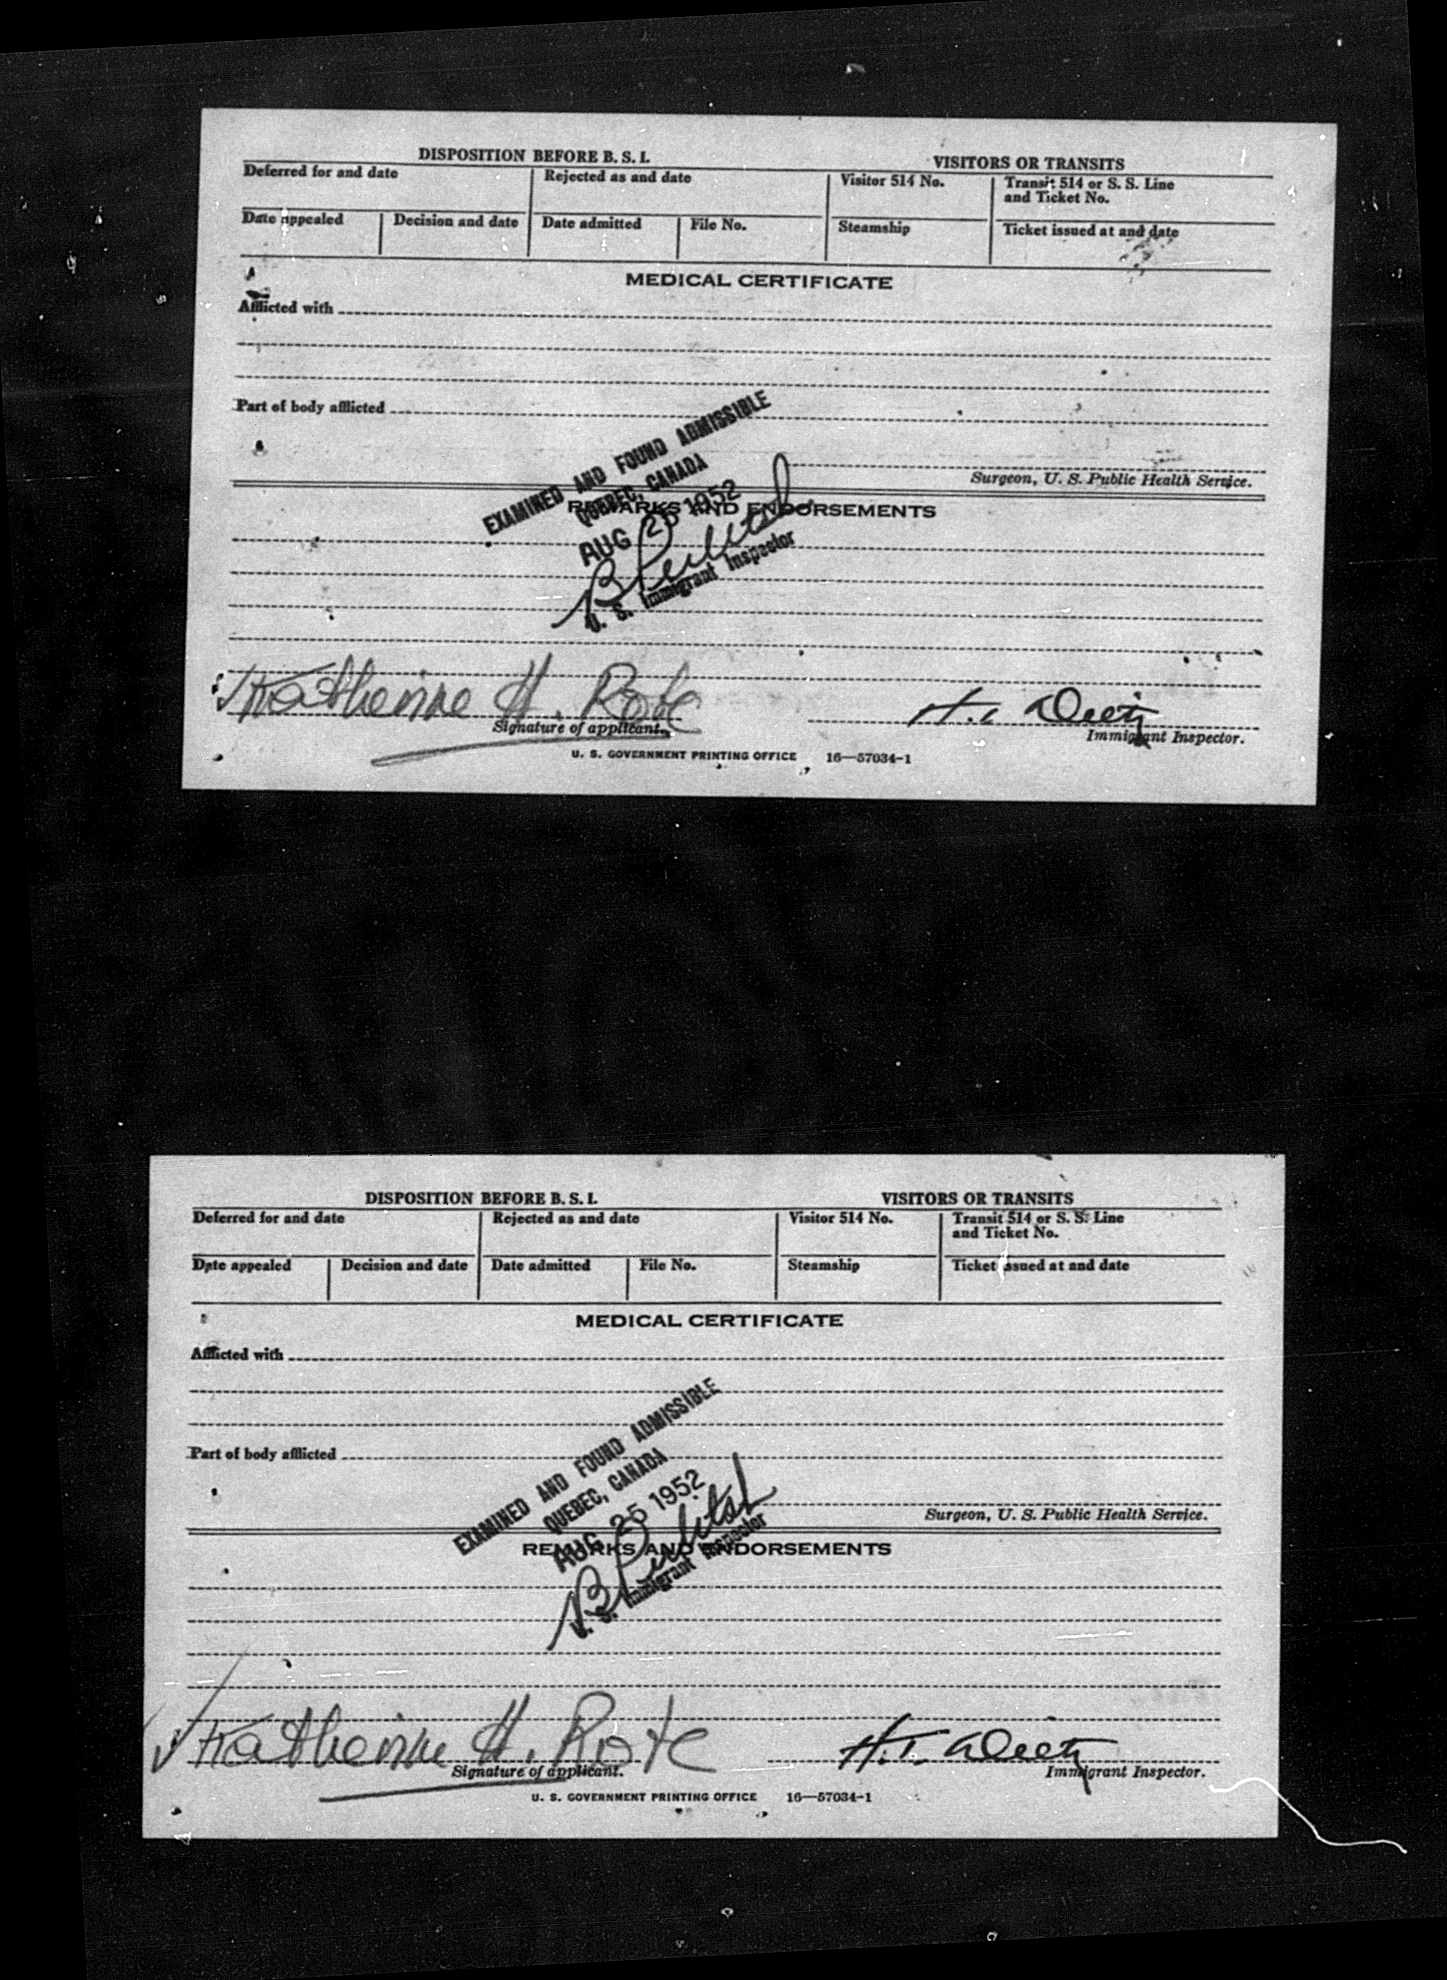 DISPOSITION BEFORE B. S. I. VISITORS OR TRANSITS
Deferred for and date Rejected as and date Visitor 514 No. Transit 514 or S. S. Line
and Ticket No.
Date appealed Decision and date Date admitted File No. Steamship Ticket issued at and date
MEDICAL CERTIFICATE
Afflicted with
Part of body afflicted
EXAMINED AND FOUND ADMISSIBLE
QUEBEC, CANADA
Surgeon, U. S. Public Health Service.
REMARKS AND ENDORSEMENTS
AUG 25 1952
U. S. Immigrant Inspector
Katherine H. Rote
Signature of applicant.
Immigrant Inspector.
U. S. GOVERNMENT PRINTING OFFICE 16—57034-1
DISPOSITION BEFORE B. S. I. VISITORS OR TRANSITS
Deferred for and date Rejected as and date Visitor 514 No. Transit 514 or S. S. Line
and Ticket No.
Date appealed Decision and date Date admitted File No. Steamship Ticket issued at and date
MEDICAL CERTIFICATE
Afflicted with
Part of body afflicted
EXAMINED AND FOUND ADMISSIBLE
QUEBEC, CANADA
AUG 25 1952
Surgeon, U. S. Public Health Service.
REMARKS AND ENDORSEMENTS
U. S. Immigrant Inspector
Katherine H. Rote
Signature of applicant.
Immigrant Inspector.
U. S. GOVERNMENT PRINTING OFFICE 16—57034-1